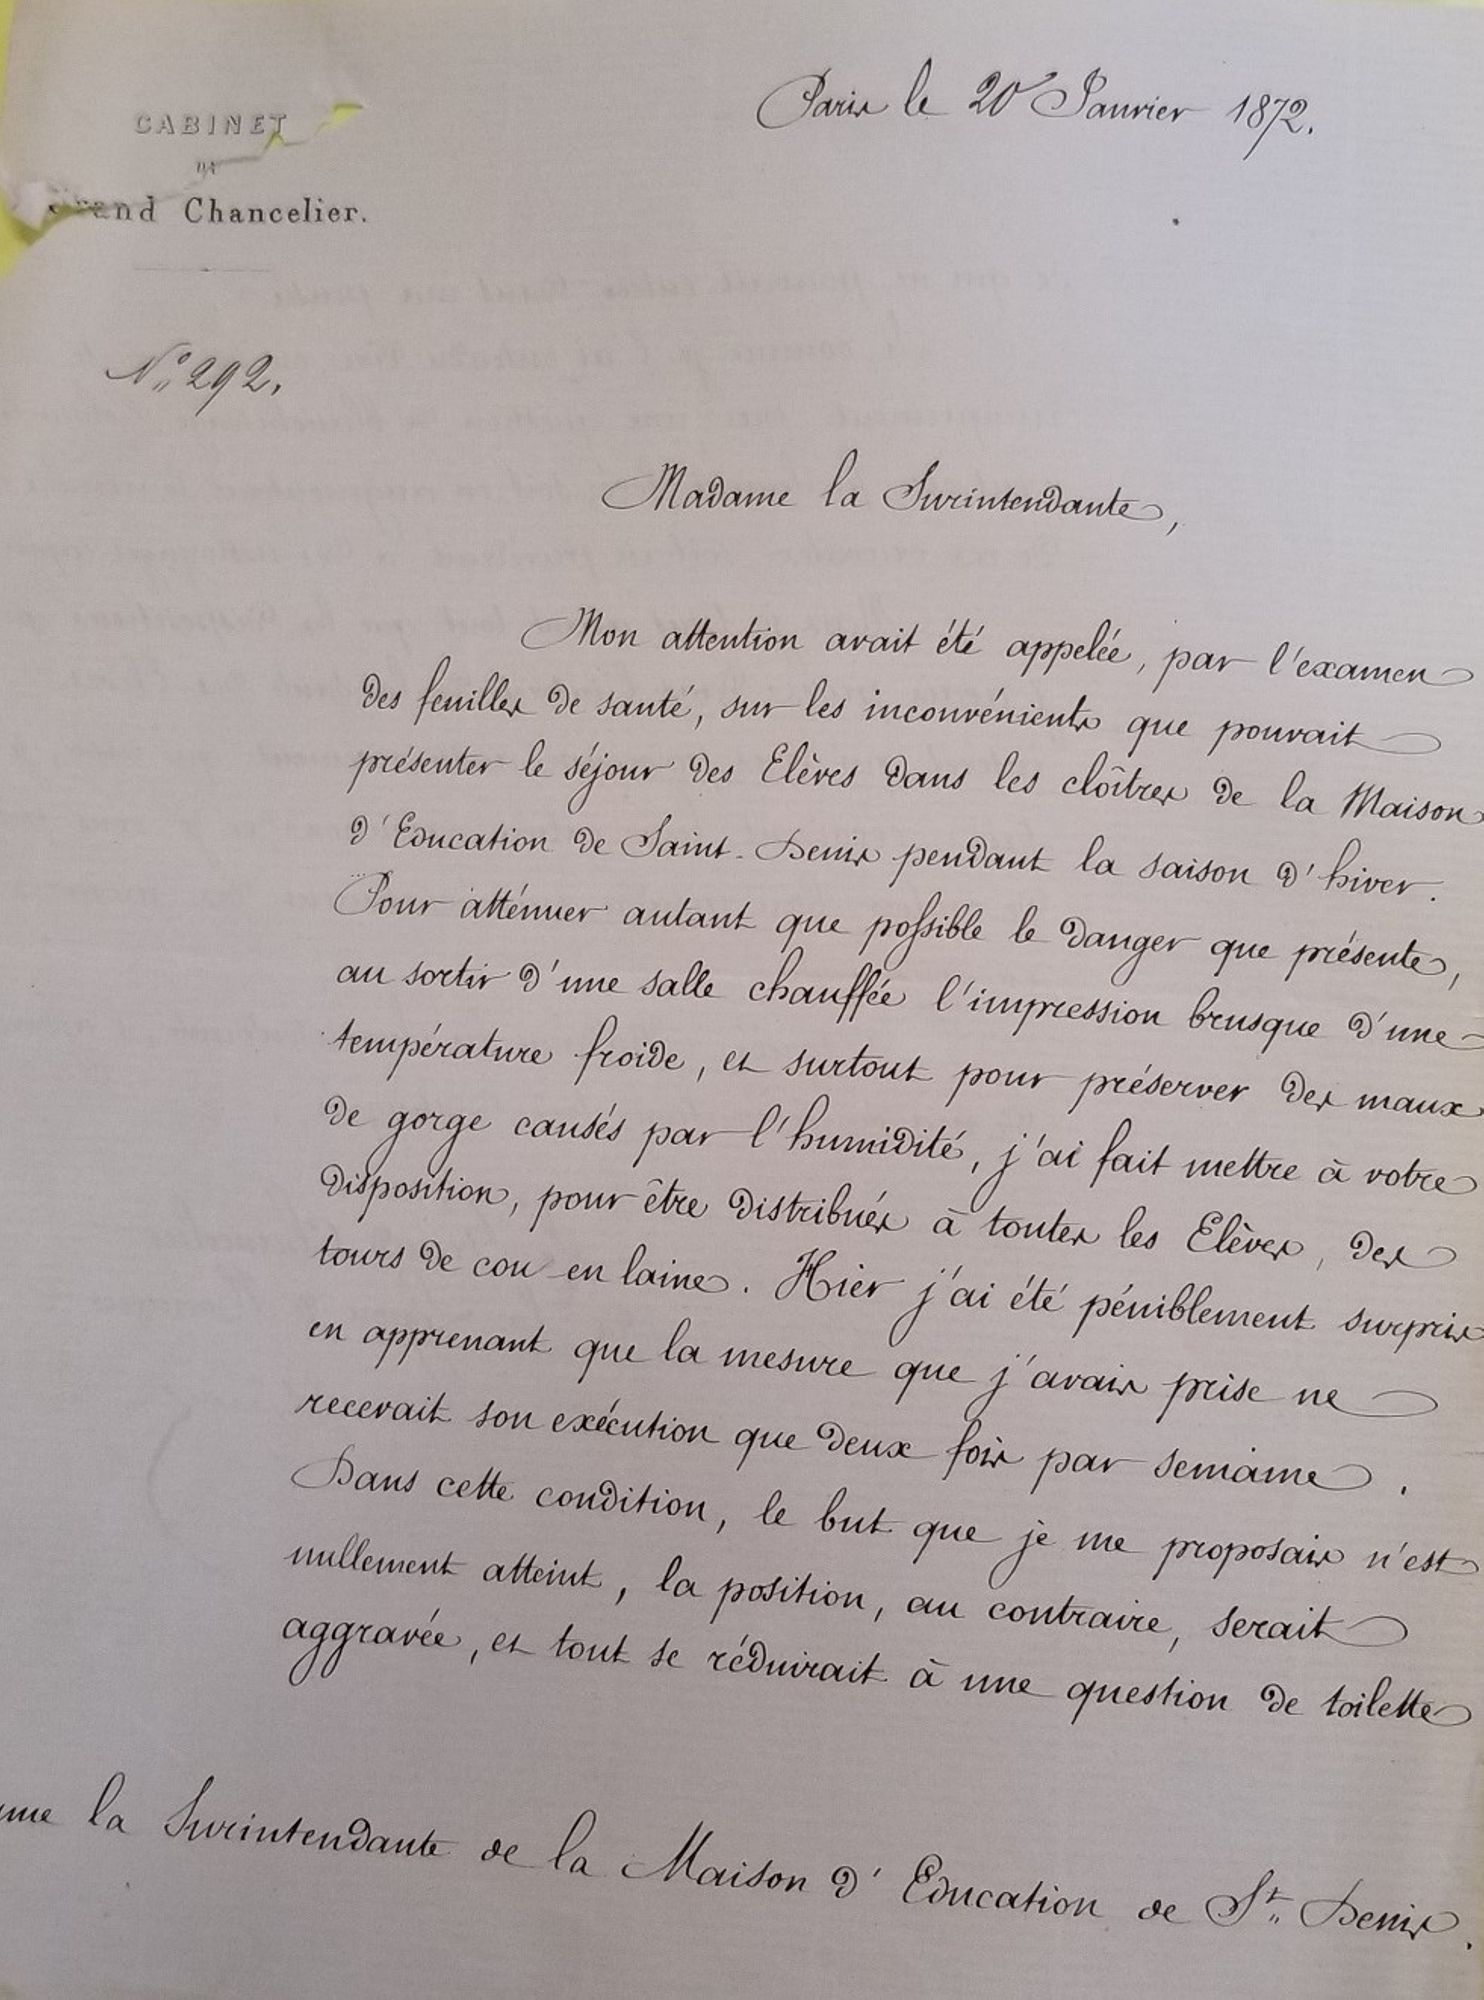 Paris le 20 Janvier 1872.
CABINET
DU
Grand Chancelier.
N° 292.
Madame la Surintendante,
Mon attention avait été appelée, par l'examen
des feuilles de santé, sur les inconvénients que pouvait
présenter le séjour des Elèves dans les cloîtres de la Maison
d'Education de Saint-Denis pendant la saison d'hiver.
Pour atténuer autant que possible le danger que présente,
au sortir d'une salle chauffée l'impression brusque d'une
température froide, et surtout pour préserver des maux
de gorge causés par l'humidité, j'ai fait mettre à votre
disposition, pour être distribués à toutes les Elèves, des
tours de cou en laine. Hier j'ai été péniblement surpris
en apprenant que la mesure que j'avais prise ne
recevait son exécution que deux fois par semaine.
Dans cette condition, le but que je me proposais n'est
nullement atteint, la position, au contraire, serait
aggravée, et tout se réduirait à une question de toilette
la Surintendante de la Maison d'Education de St. Denis.